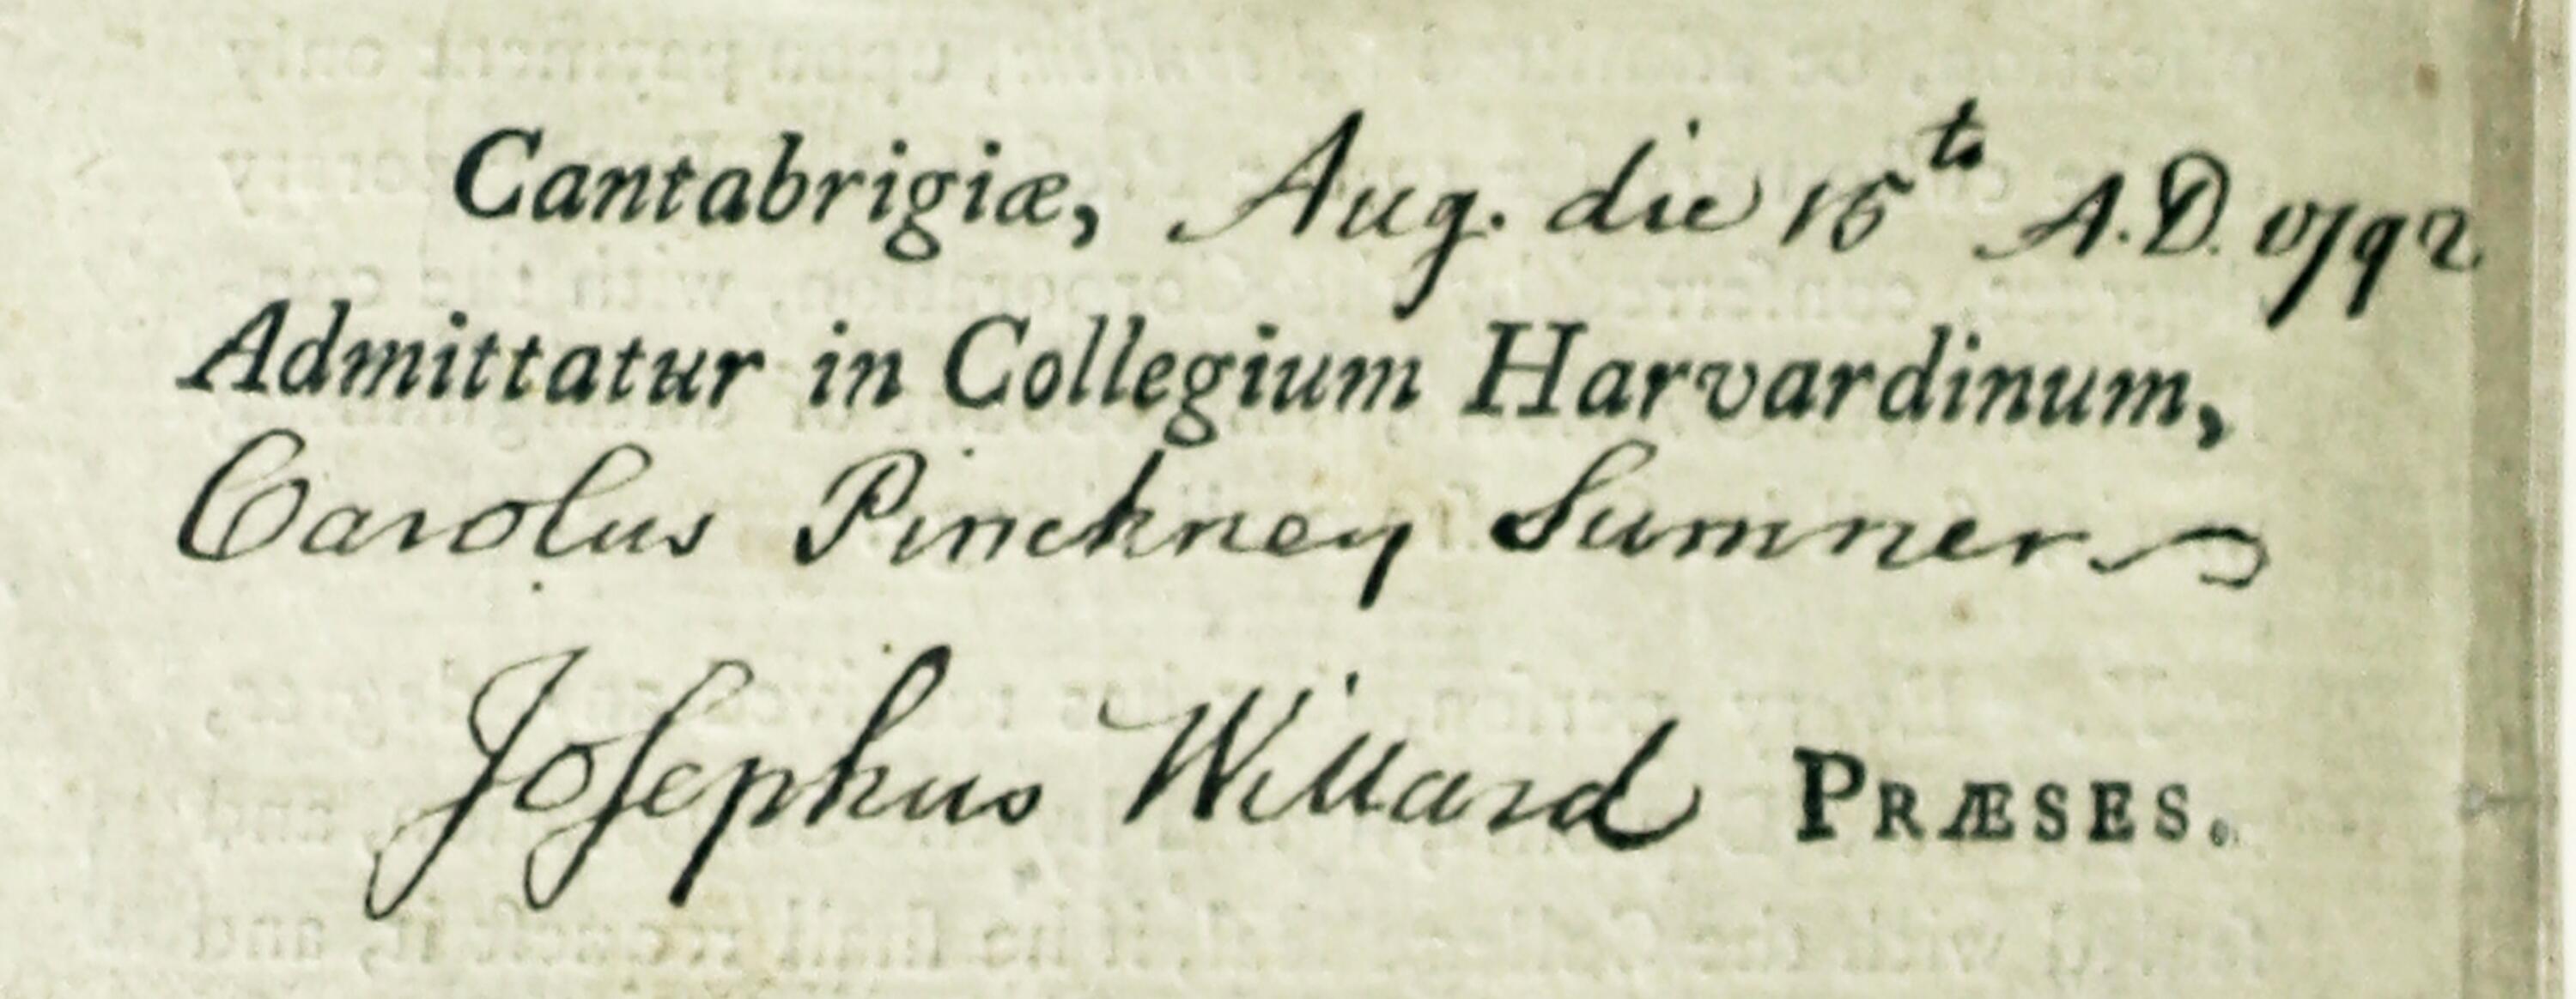 Cantabrigiæ, Aug. die 15to A.D. 1792
Admittatur in Collegium Harvardinum,
Carolus Pinckney Sumner
Joſephus Willard PRÆSES.